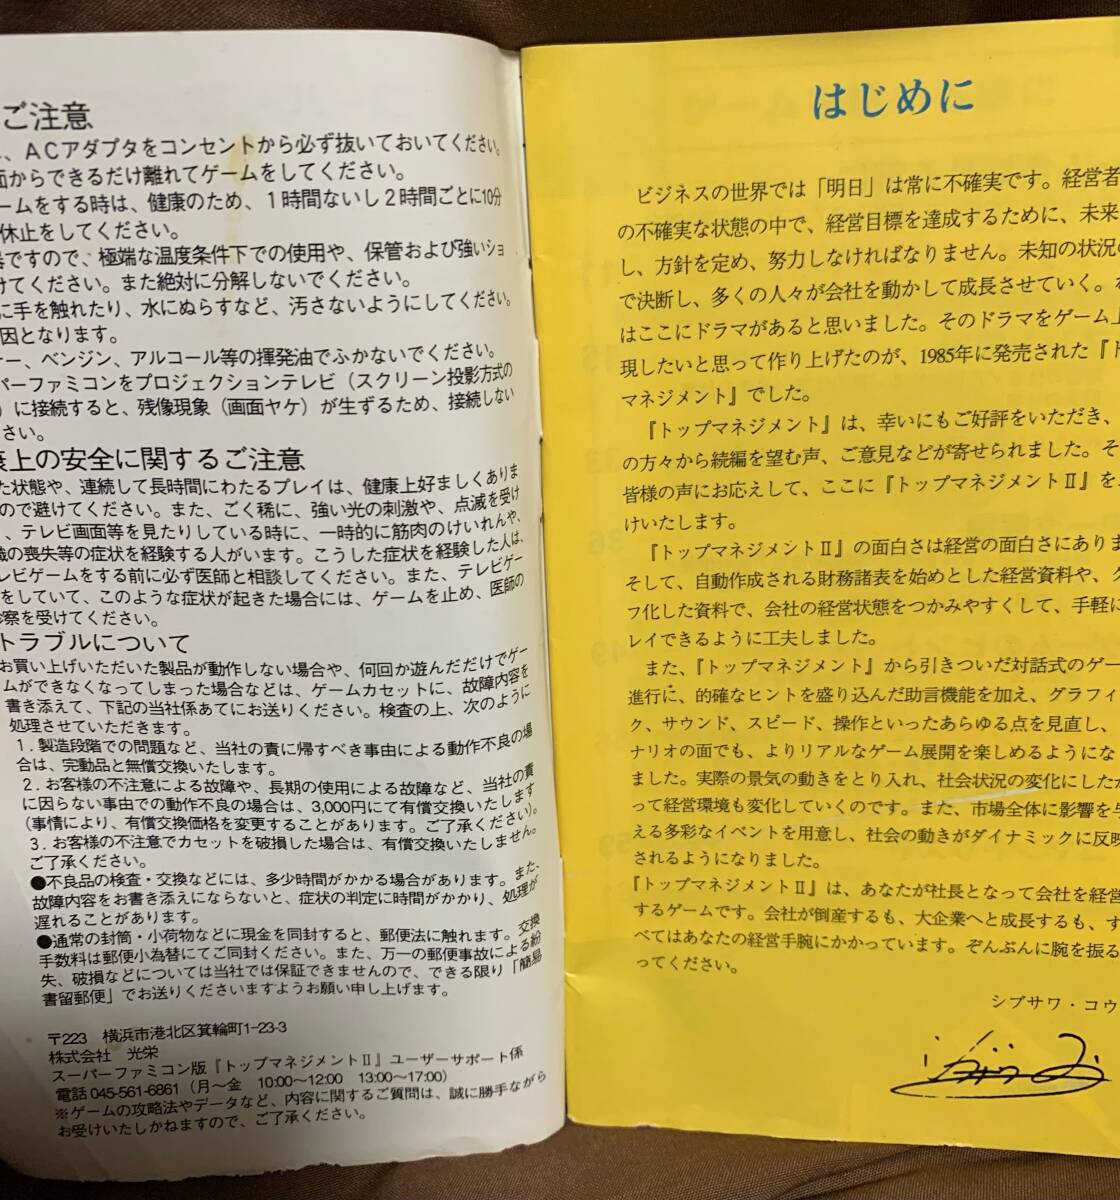 ご注意
、ACアダプタをコンセントから必ず抜いておいてください。
面からできるだけ離れてゲームをしてください。
ームをする時は、健康のため、1時間ないし2時間ごとに10分
休止をしてください。
器ですので、極端な温度条件下での使用や、保管および強いショ
けてください。また絶対に分解しないでください。
に手を触れたり、水にぬらすなど、汚さないようにしてください。
因となります。
ナー、ベンジン、アルコール等の揮発油でふかないでください。
パーファミコンをプロジェクションテレビ（スクリーン投影方式の
）に接続すると、残像現象（画面ヤケ）が生ずるため、接続しない
さい。
康上の安全に関するご注意
た状態や、連続して長時間にわたるプレイは、健康上好ましくありま
ので避けてください。また、ごく稀に、強い光の刺激や、点滅を受け
、テレビ画面等を見たりしている時に、一時的に筋肉のけいれんや、
識の喪失等の症状を経験する人がいます。こうした症状を経験した人は、
レビゲームをする前に必ず医師と相談してください。また、テレビゲー
をしていて、このような症状が起きた場合には、ゲームを止め、医師の
診察を受けてください。
トラブルについて
お買い上げいただいた製品が動作しない場合や、何回か遊んだだけでゲー
ムができなくなってしまった場合などは、ゲームカセットに、故障内容を
書き添えて、下記の当社係あてにお送りください。検査の上、次のように
処理させていただきます。
1．製造段階での問題など、当社の責に帰すべき事由による動作不良の場
合は、完動品と無償交換いたします。
2．お客様の不注意による故障や、長期の使用による故障など、当社の責
に因らない事由での動作不良の場合は、3,000円にて有償交換いたします
（事情により、有償交換価格を変更することがあります。ご了承ください）。
3．お客様の不注意でカセットを破損した場合は、有償交換いたしません。
ご了承ください。
●不良品の検査・交換などには、多少時間がかかる場合があります。また、
故障内容をお書き添えにならないと、症状の判定に時間がかかり、処理が
遅れることがあります。
●通常の封筒・小荷物などに現金を同封すると、郵便法に触れます。交換
手数料は郵便小為替にてご同封ください。また、万一の郵便事故による紛
失、破損などについては当社では保証できませんので、できる限り「簡易
書留郵便」でお送りくださいますようお願い申し上げます。
〒223 横浜市港北区箕輪町1-23-3
株式会社 光栄
スーパーファミコン版『トップマネジメントⅡ』ユーザーサポート係
電話 045-561-6861（月〜金 10:00〜12:00 13:00〜17:00）
※ゲームの攻略法やデータなど、内容に関するご質問は、誠に勝手ながら
お受けいたしかねますので、ご了承ください。
はじめに
ビジネスの世界では「明日」は常に不確実です。経営者
の不確実な状態の中で、経営目標を達成するために、未来
し、方針を定め、努力しなければなりません。未知の状況の
で決断し、多くの人々が会社を動かして成長させていく。
はここにドラマがあると思いました。そのドラマをゲーム
現したいと思って作り上げたのが、1985年に発売された『ト
マネジメント』でした。
『トップマネジメント』は、幸いにもご好評をいただき、
の方々から続編を望む声、ご意見などが寄せられました。そ
皆様の声にお応えして、ここに『トップマネジメントⅡ』を
けいたします。
『トップマネジメントⅡ』の面白さは経営の面白さにありま
そして、自動作成される財務諸表を始めとした経営資料や、グ
フ化した資料で、会社の経営状態をつかみやすくして、手軽に
レイできるように工夫しました。
また、『トップマネジメント』から引きついだ対話式のゲー
進行に、的確なヒントを盛り込んだ助言機能を加え、グラフィ
ク、サウンド、スピード、操作といったあらゆる点を見直し、
ナリオの面でも、よりリアルなゲーム展開を楽しめるようにな
ました。実際の景気の動きをとり入れ、社会状況の変化にしたが
って経営環境も変化していくのです。また、市場全体に影響を与
える多彩なイベントを用意し、社会の動きがダイナミックに反映
されるようになりました。
『トップマネジメントⅡ』は、あなたが社長となって会社を経営
するゲームです。会社が倒産するも、大企業へと成長するも、す
べてはあなたの経営手腕にかかっています。ぞんぶんに腕を振る
ってください。
シブサワ・コウ